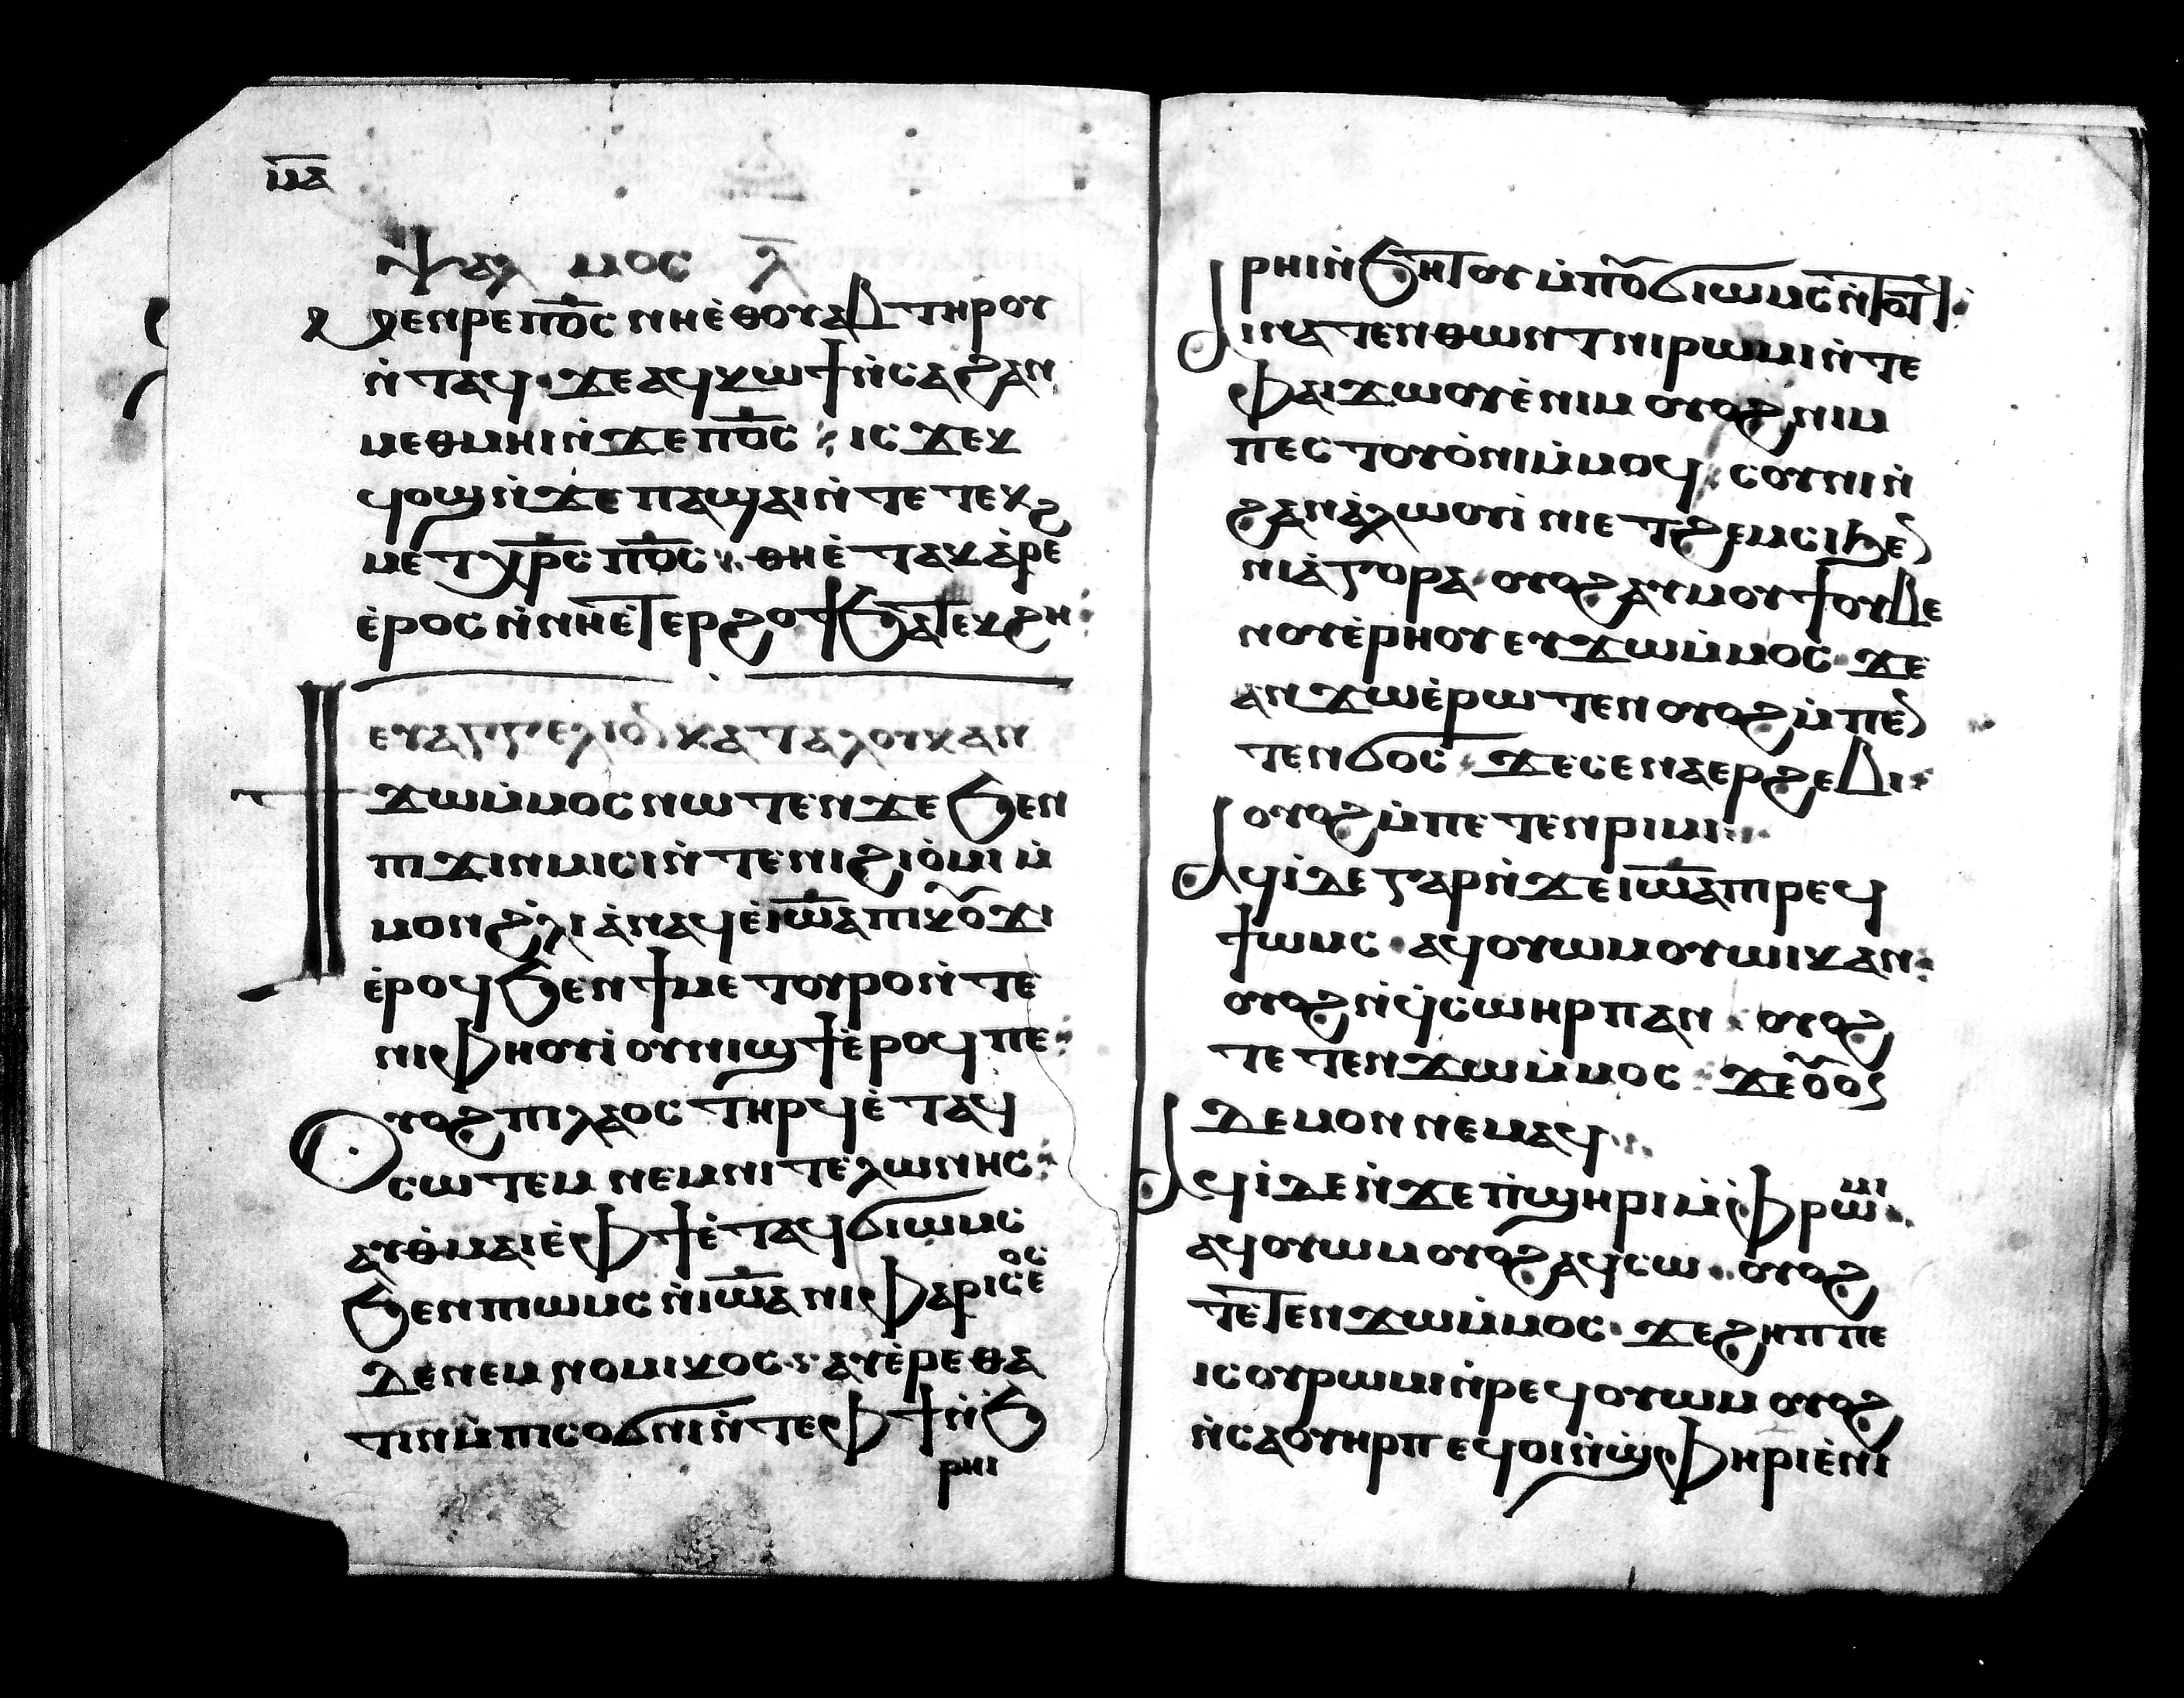 ⲙ̅ⲁ̅
ⲯⲁⲗⲙⲟⲥ ⲗ̅
ⲙⲉⲛⲣⲉ ⲡ̅ⲟ̅ⲥ̅ ⲛⲏⲉ̀ⲑⲟⲩⲁⲃ ⲧⲏⲣⲟⲩ
ⲛ̀ⲧⲁϥ· ϫⲉ ⲁϥⲕⲱϯ ⲛ̀ⲥⲁ ϩⲁⲛ
ⲙⲉⲑⲙⲏⲓ ⲛ̀ϫⲉ ⲡ̅ⲟ̅ⲥ̅ : ⲓⲥϫⲉⲕ
ϥⲟϣ ⲛ̀ϫⲉ ⲡⲁϣⲁⲓ ⲛ̀ⲧⲉ ⲧⲉⲕ
ⲙⲉⲧⲭ̅ⲣ̅ⲥ̅ ⲡ̅ⲟ̅ⲥ̅ : ⲑⲏⲉ̀ⲧⲁⲕⲁ̀ⲣⲉϩ
ⲉ̀ⲣⲟⲥ ⲛ̀ⲛⲏⲉ̀ⲧⲉⲣϩⲟϯ ϧⲁⲧⲉⲕϩⲏ :
ⲉⲩⲁⲅⲅⲉⲗⲓⲟⲛ ⲕⲁⲧⲁ ⲗⲟⲩⲕⲁⲛ
ϯϫⲱ ⲙ̀ⲙⲟⲥ ⲛⲱⲧⲉⲛ ϫⲉ ϧⲉⲛ
ⲡⲓϫⲓⲛⲙⲓⲥⲓ ⲛ̀ⲧⲉ ⲛⲓϩⲓⲟ̀ⲙⲓ ⲙ̀
ⲙⲟⲛ ϩ̀ⲗⲓ ⲁ̀ⲛⲁϥ ⲉ̀ⲓⲱ̅ⲁ̅ ⲡⲓⲕⲟⲩϫⲓ
ⲉ̀ⲣⲟϥ ϧⲉⲛ ϯⲙⲉⲧⲟⲩⲣⲟ ⲛ̀ⲧⲉ
ⲛⲓⲫⲏⲟⲩⲓ̀ ⲟⲩⲛⲓϣϯ ⲉ̀ⲣⲟϥ ⲡⲉ :
ⲟⲩⲟϩ ⲡⲓⲗⲁⲟⲥ ⲧⲏⲣϥ ⲉ̀ⲧⲁϥ
ⲥⲱⲧⲉⲙ ⲛⲉⲙ ⲛⲓⲧⲉⲗⲱⲛⲏⲥ :
ⲁⲩⲑ̀ⲙⲁⲓⲉ̀ ⲫϯ ⲉ̀ⲧⲁϥϭⲓⲱⲙⲥ
ϧⲉⲛ ⲡⲓⲱⲙⲥ ⲛ̀ⲓⲱ̅ⲁ̅ ⲛⲓⲫⲁⲣⲓⲥⲉⲟⲥ
ⲇⲉ ⲛⲉⲙ ⲛⲟⲙⲓⲕⲟⲥ : ⲁⲩⲉ̀ⲣⲉⲑⲁ
ⲧⲓⲛ ⲙ̀ⲡⲓⲥⲟϭⲛⲓ ⲛ̀ⲧⲉ ⲫϯ ⲛ̀ϧ̀
ⲣⲏⲓ
ⲣⲏⲓ ⲛ̀ϧⲏⲧⲟⲩ ⲙ̀ⲡⲟⲩϭⲓⲱⲙⲥ ⲛ̀ⲧⲟⲧϥ :
ⲁⲓⲛⲁⲧⲉⲛⲑⲱⲛ ⲧⲛⲓⲣⲱⲙⲓ ⲛ̀ⲧⲉ
ⲫⲁⲓϫⲱⲟⲩ ⲉ̀ⲛⲓⲙ ⲟⲩⲟϩ ⲛⲓⲙ
ⲡⲉⲥⲧⲟⲩⲟ̀ⲛⲓ ⲙ̀ⲙⲟϥ : ⲥⲟⲩⲛⲓ ⲛ̀
ϩⲁⲛⲁ̀ⲗⲱⲟⲩⲓ̀ ⲛⲓⲉⲧϩⲉⲙⲥⲓ ϧⲉⲛ
ⲛⲓⲁ̀ⲅⲟⲣⲁ· ⲟⲩⲟϩ ⲁⲩⲙⲟⲩϯ ⲟⲩⲃⲉ
ⲛⲟⲩⲉ̀ⲣⲏⲟⲩ ⲉⲩϫⲱ ⲙ̀ⲙⲟⲥ· ϫⲉ
ⲁⲛϫⲱ ⲉ̀ⲣⲱⲧⲉⲛ ⲟⲩⲟϩ ⲙ̀ⲡⲉ
ⲧⲉⲛϭⲟⲥ : ϫⲉⲥ ⲉⲛⲁⲉⲣϩⲉⲃⲓ :
ⲟⲩⲟϩ ⲙ̀ⲡⲉⲧⲉⲛⲣⲓⲙⲓ :
ⲁϥⲓ̀ ⲇⲉ ⲅⲁⲣ ⲛ̀ϫⲉ ⲓⲱ̅ⲁ̅ ⲡⲓⲣⲉϥ
ϯⲱⲙⲥ · ⲁϥⲟⲩⲱⲙ ⲟⲩⲱⲓⲕ ⲁⲛ :
ⲟⲩⲟϩ ⲛ̀ϥ̀ⲥⲱ ⲏⲣⲡ ⲁⲛ : ⲟⲩⲟϩ
ⲧⲉⲧⲉⲛϫⲱ ⲙ̀ⲙⲟⲥ : ϫⲉ ⲟⲩⲟⲛ
ⲇⲉⲙⲟⲛ ⲛⲉⲙⲁϥ :
ⲁϥⲓ̀ ⲇⲉ ⲛ̀ϫⲉ ⲡ̀ϣⲏⲣⲓ ⲙ̀ⲫ̀ⲣⲱⲙⲓ :
ⲁϥⲟⲩⲱⲙ ⲟⲩⲟϩ ⲁϥⲥⲱ : ⲟⲩⲟϩ
ⲧⲉⲧⲉⲛϫⲱ ⲙ̀ⲙⲟⲥ· ϫⲉ ϩⲏⲡⲡⲉ
ⲓⲥ ⲟⲩⲣⲱⲙⲓ ⲛ̀ⲣⲉϥⲟⲩⲱⲙ ⲟⲩⲟϩ
ⲛ̀ⲥⲁⲟⲩⲏⲣⲡ ⲉϥⲟⲓ ⲛ̀ϣ̀ⲫⲏⲣⲓ ⲉ̀ⲛⲓ